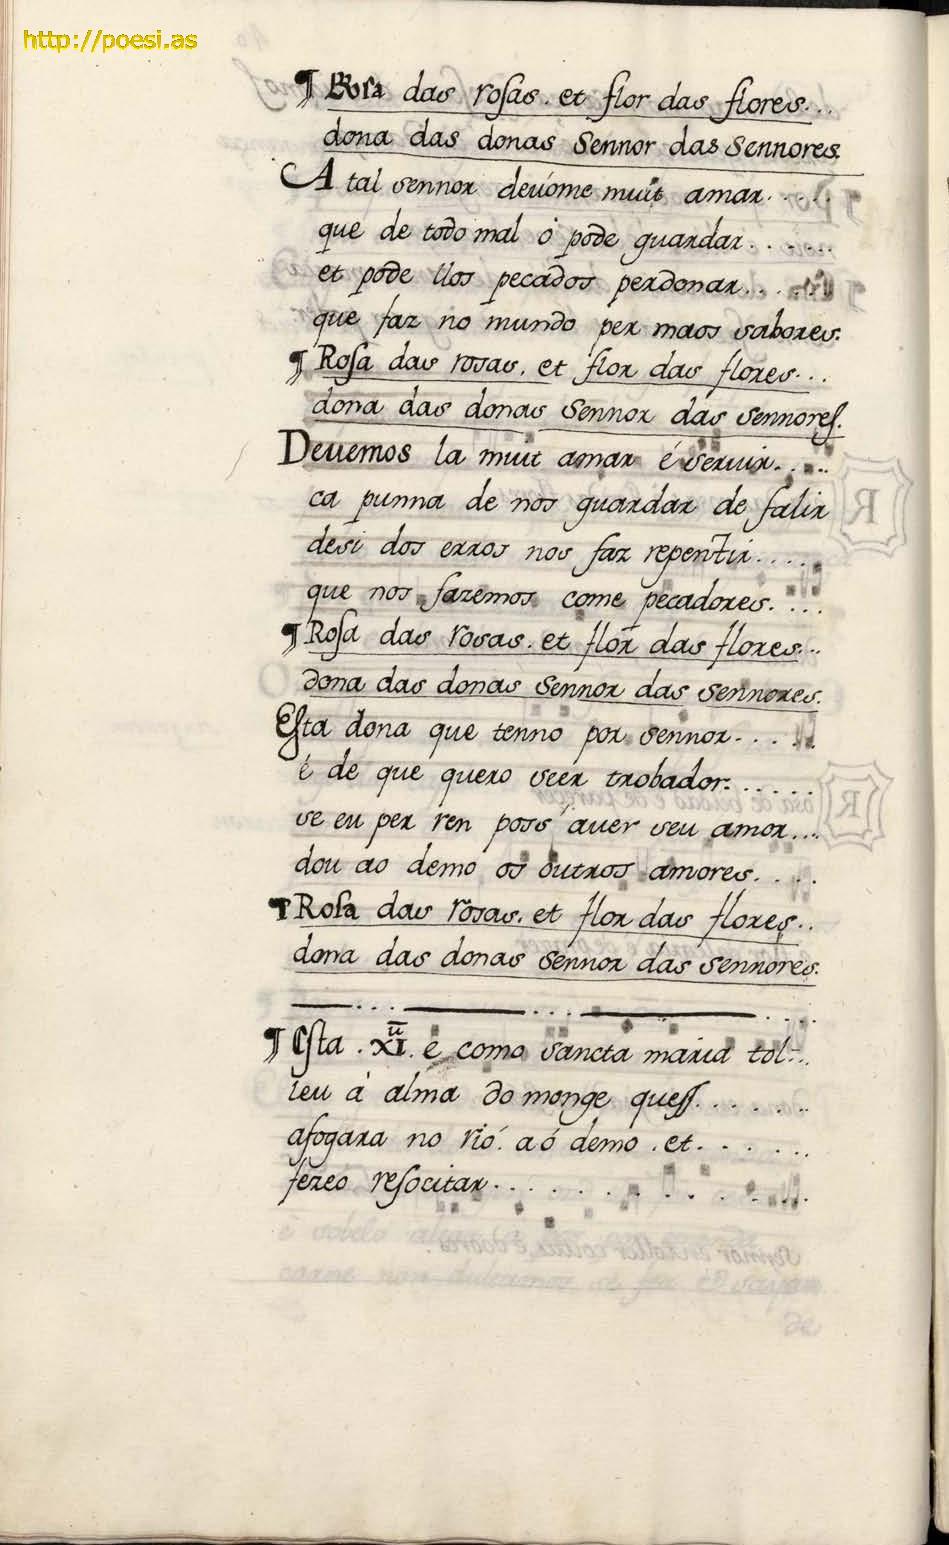 http://poesi.as
¶ Rosa das rosas. et flor das flores...
dona das donas Sennor das Sennores.
A tal sennor deuome muit amar.....
que de todo mal ó pode guardar......
et pode llos pecados perdonar......
que faz no mundo per maos sabores.
¶ Rosa das rosas. et flor das flores...
dona das donas Sennor das sennores.
Deuemos la muit amar é seruir.....
ca punna de nos guardar de falir
desi dos erros nos faz repentir.....
que nos fazemos come pecadores....
¶ Rosa das rosas. et flor das flores...
dona das donas sennor das sennores.
Esta dona que tenno por sennor....
é de que quero seer trobador......
se eu per ren poss' auer seu amor....
dou ao demo os outros amores....
¶ Rosa das rosas. et flor das flores..
dona das donas sennor das sennores.
¶ Esta .XI. é como sancta maria tol-..
leu á alma do monge quess.......
afogara no rio. aó demo. et......
fezeo resocitar............